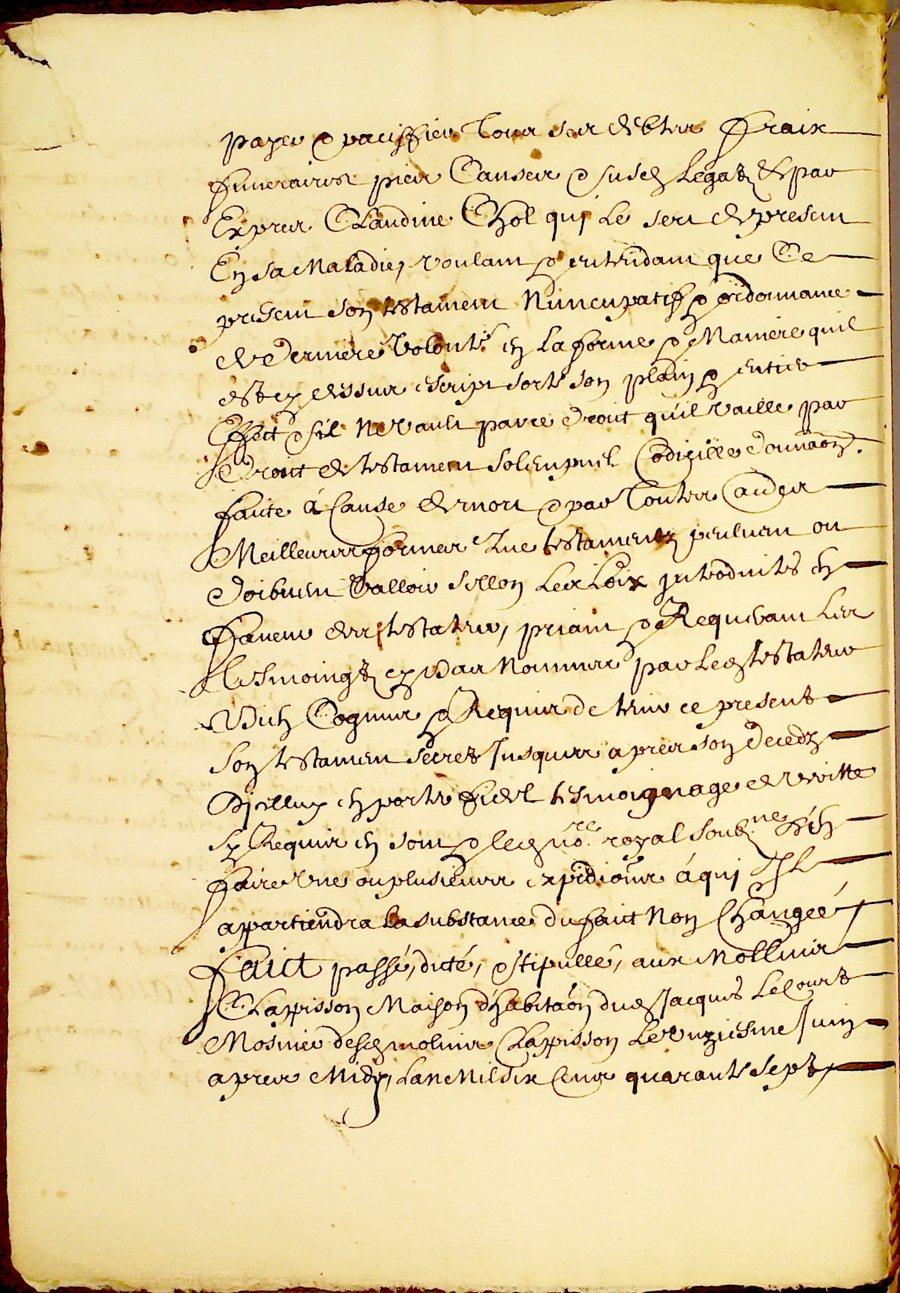 payer & paciffier tous ses debtes fraix
funeraires pies Causes & susd legatz & par
Expres Claudine Chol qui le sert de present
En sa Maladie, voulant & entendant que Ce
present son testament Nuncupatif & ordonnance
de derniere volonté en la forme & Maniere quil
est cy dessus escript sorte son plain & entier
Effect & sil Ne vault par ce droit quil vaille par
droit de testament solempnel Codicille donnaõn
faite á Cause de mort & par toutes Causes
Meilleures formes que testamentz peuluent ou
doibuent valloir sellon les loix introduites en
faueur des testateurs, priant & Requerant les
tesmoingz cy bas Nommes par led testateur
bien Cognus & Requis de tenir ce present
son testament secret Jusques apres son decedz
& jcelluy en porter fidel tesmoignage de veritte
sy Requis en sont & led nore royal soubzne d'en
faire vne ou plusieurs expedições á qui Il
appartiendra la substance du faict Non Changée,
faict passé, dicté, & stipullé, aux Mollins
Clappisson Maison d'habitaõn dud Jacques Lecourt
Mosnier desd molins Clappisson Le vnziesme Juin
apres Midy, Lan Mil Six Cens quarante sept,